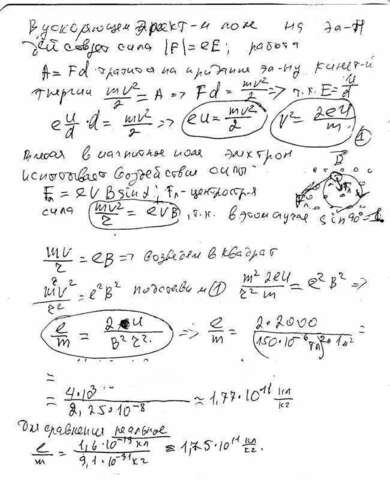 В ускоряющем элект-м поле на эл-н
действует сила |F| = eE; работа
A = Fd тратится на придание эл-ну кинет-й
энергии mv²/2 = A => Fd = mv²/2 => т.к. E = U/d
e U/d · d = mv²/2 => eU = mv²/2 v² = 2eU/m ①
Влетая в магнитное поле электрон
испытывает воздействие силы
Fл = eVB sinα; Fл - центростр-я
сила mv²/r = evB, т.к. в этом случае sin 90° = 1
mv/r = eB => возведём в квадрат
m²v²/r² = e²B² подставим ① m² 2eU/r² m = e²B² =>
e/m = 2U/B²r² => e/m = 2·2000/(150·10⁻⁶ Тл)² · 1м² =
=
= 4·10³/2,25·10⁻⁸ ≈ 1,77·10¹¹ Кл/кг
Для сравнения реальное
e/m = 1,6·10⁻¹⁹ Кл/9,1·10⁻³¹ кг ≈ 1,75·10¹¹ Кл/кг.